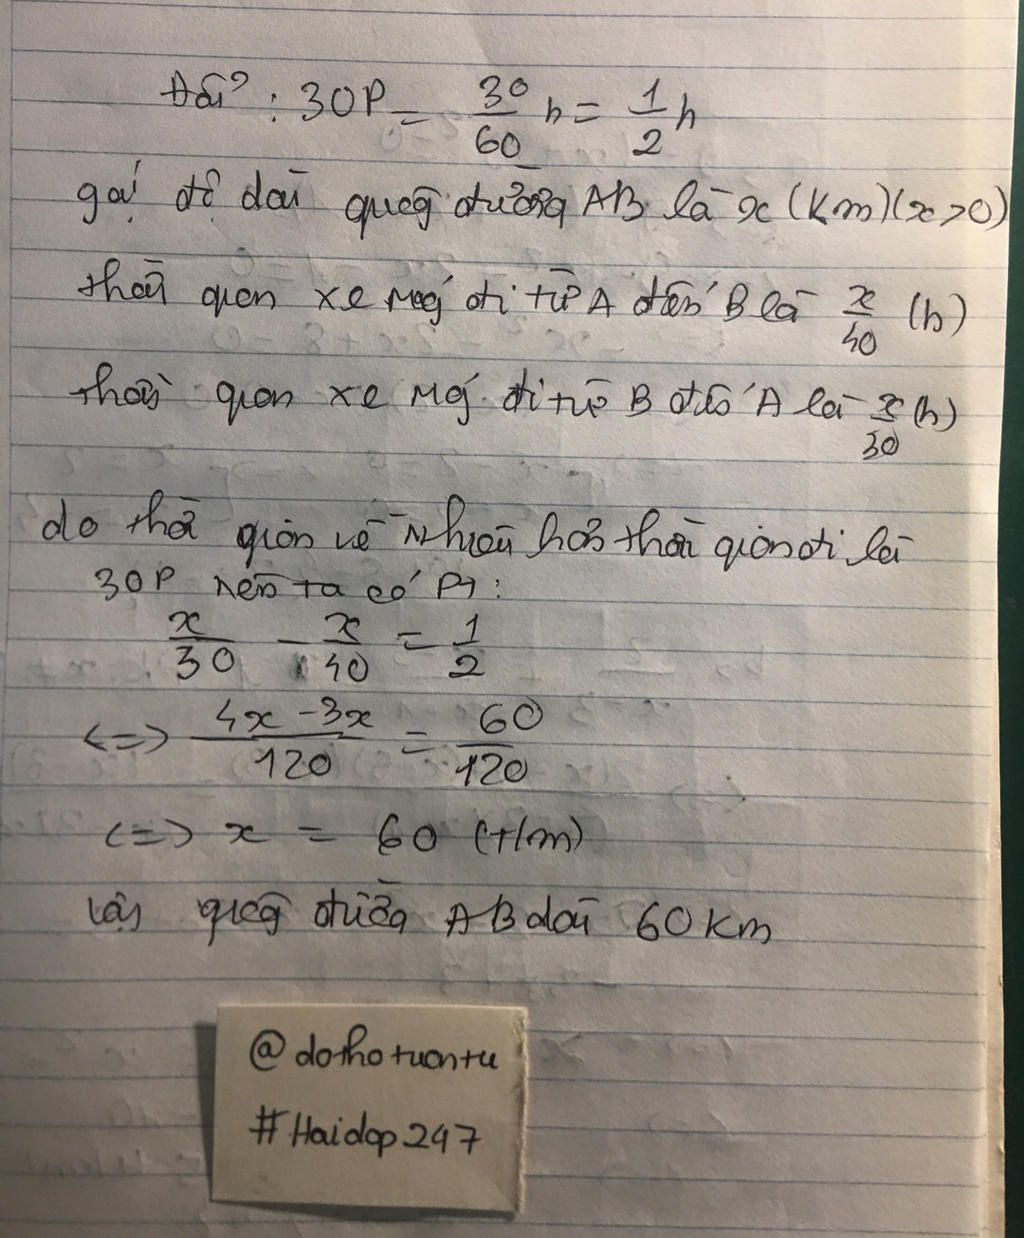 Đổi : 30P = 30/60 h = 1/2 h
gọi độ dài quãng đường AB là x (km) (x>0)
thời gian xe máy đi từ A đến B là x/40 (h)
thời gian xe máy đi từ B đến A là x/30 (h)
do thời gian về nhiều hơn thời gian đi là
30P nên ta có PT:
x/30 - x/40 = 1/2
<=> 4x-3x/120 = 60/120
<=> x = 60 (t/m)
Vậy quãng đường AB dài 60km
@dothotuantu
#Haidap247